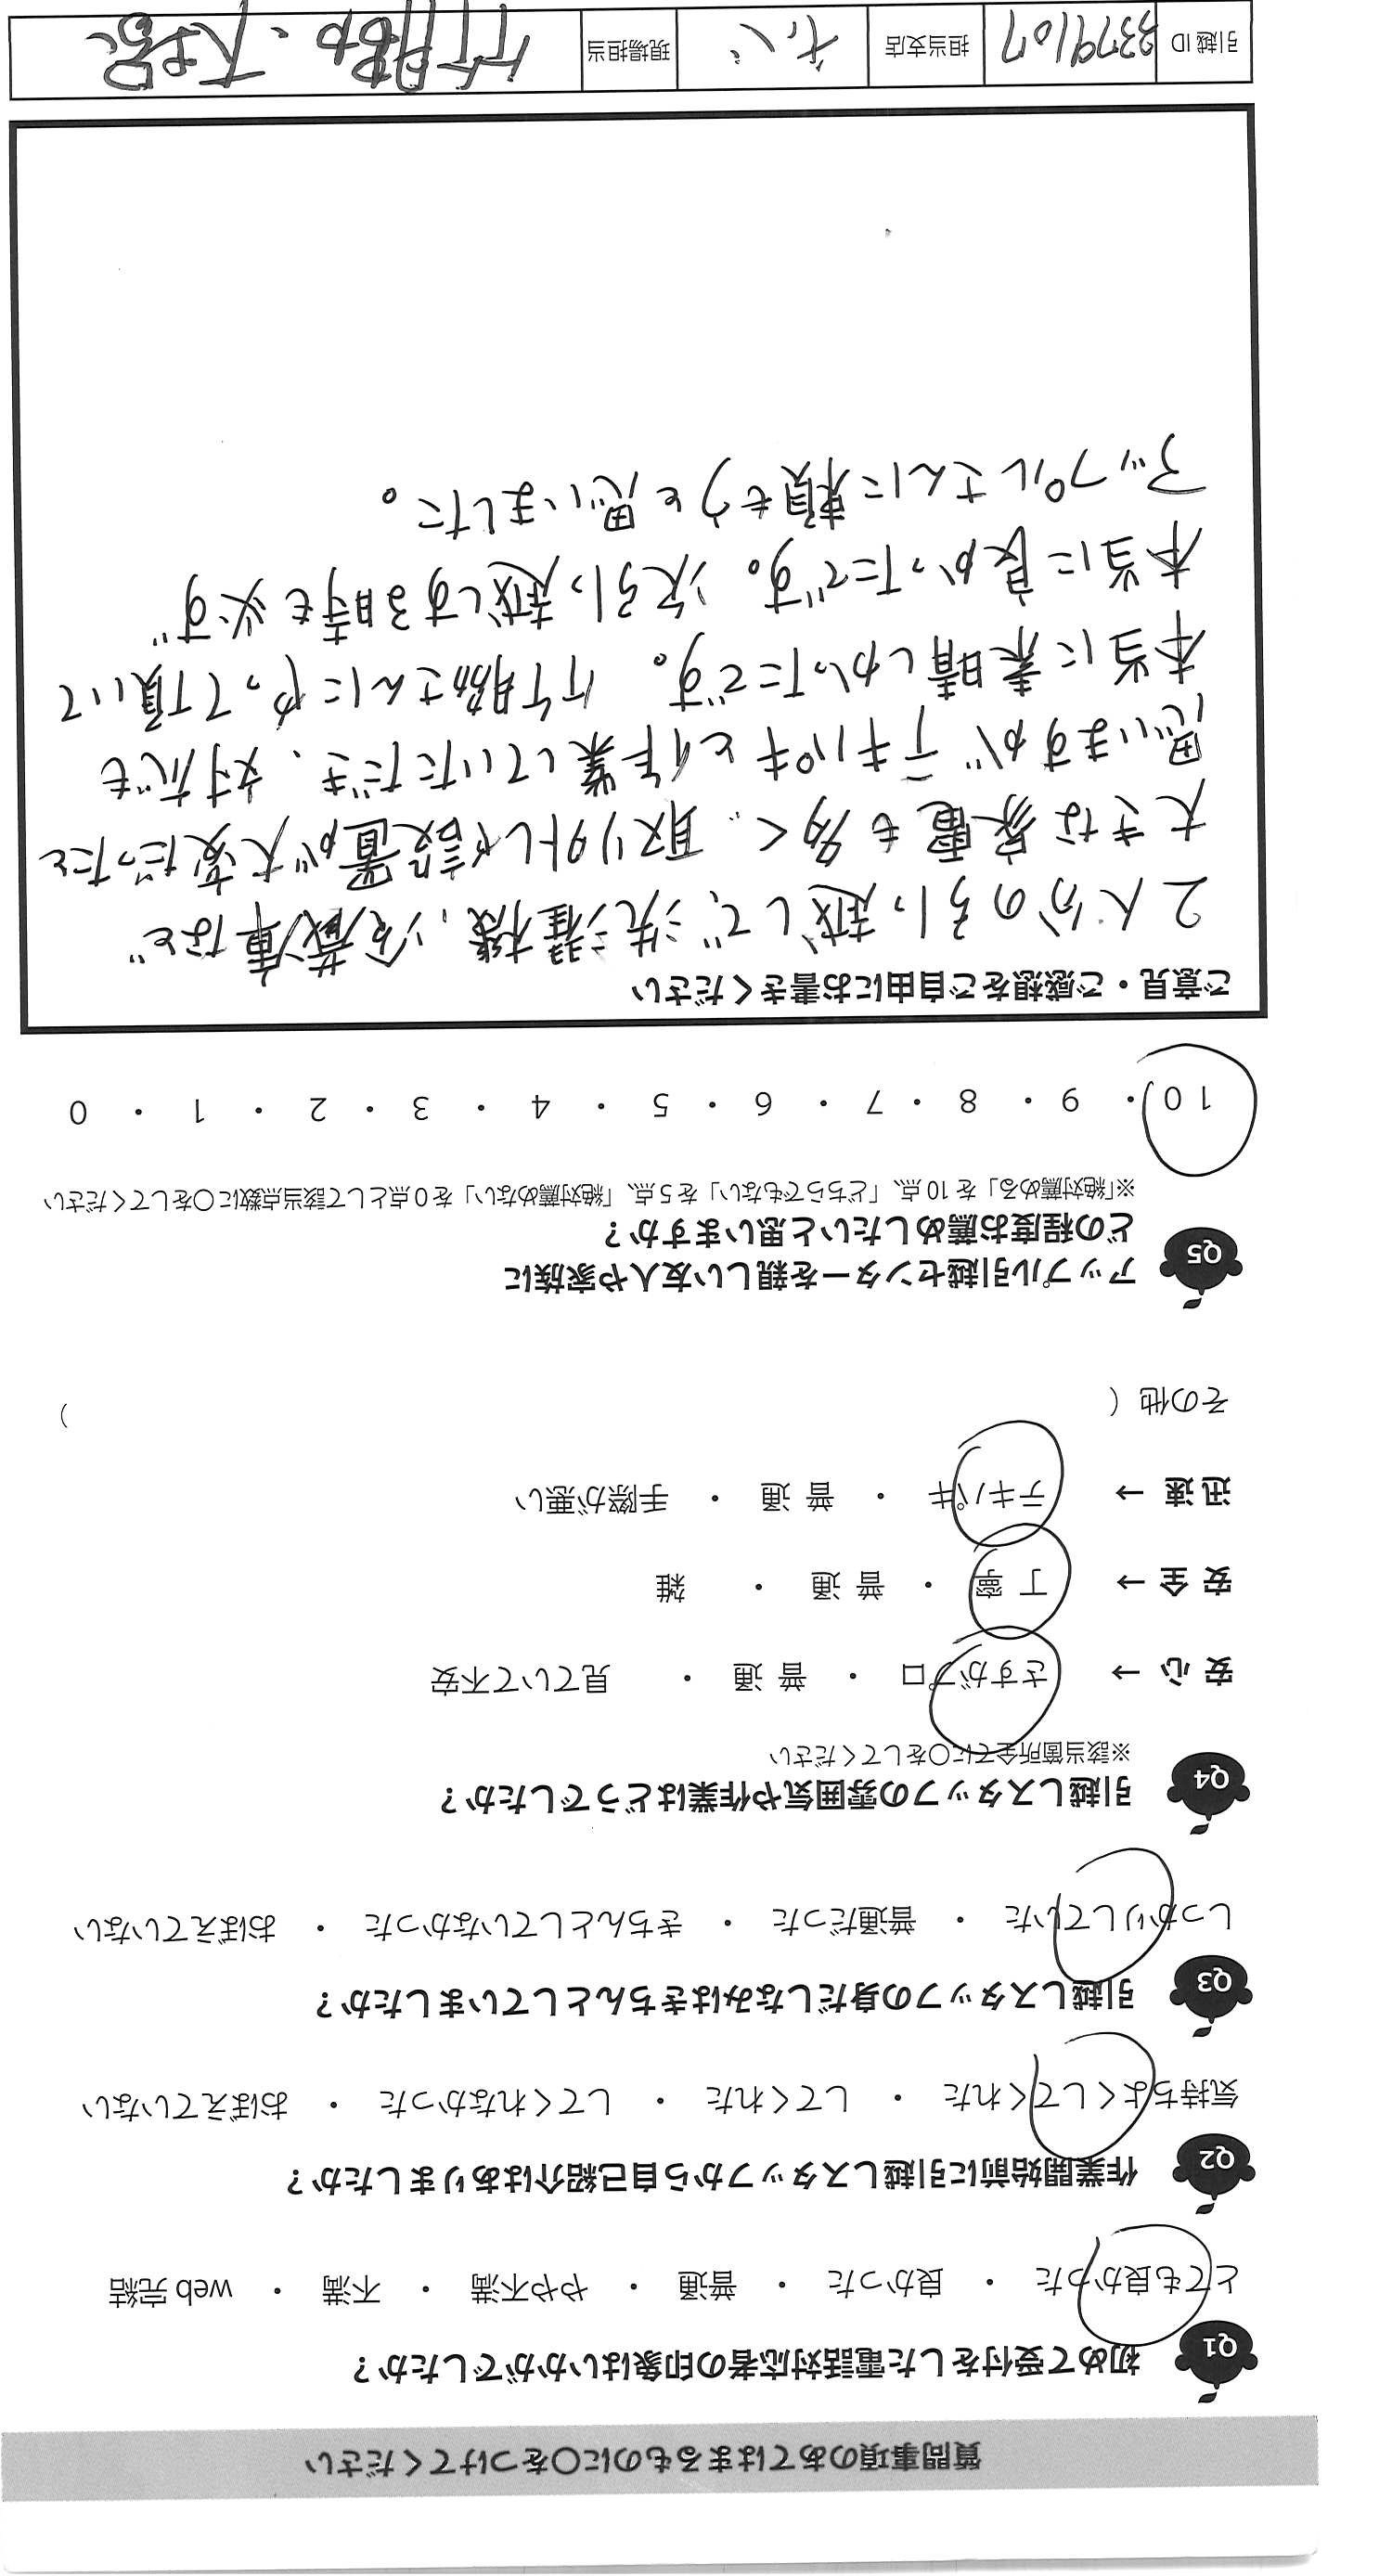 質問事項のあてはまるものに〇をつけてください
Q1 初めて受付をした電話対応者の印象はいかがでしたか？
とても良かった ・ 良かった ・ 普通 ・ やや不満 ・ 不満 ・ web 完結
Q2 作業開始前に引越しスタッフから自己紹介はありましたか？
気持ちよくしてくれた ・ してくれた ・ してくれなかった ・ おぼえていない
Q3 引越しスタッフの身だしなみはきちんとしていましたか？
しっかりしていた ・ 普通だった ・ きちんとしていなかった ・ おぼえていない
Q4 引越しスタッフの雰囲気や作業はどうでしたか？
※該当箇所全てに〇をしてください
安 心 → さすがプロ ・ 普 通 ・ 見ていて不安
安 全 → 丁 寧 ・ 普 通 ・ 雑
迅 速 → テキパキ ・ 普 通 ・ 手際が悪い
その他（ ）
Q5 アップル引越センターを親しい友人や家族に
どの程度お薦めしたいと思いますか？
※「絶対薦める」を 10 点、「どちらでもない」を 5 点、「絶対薦めない」を 0 点として該当点数に〇をしてください
10 ・ 9 ・ 8 ・ 7 ・ 6 ・ 5 ・ 4 ・ 3 ・ 2 ・ 1 ・ 0
ご意見・ご感想をご自由にお書きください
2人分の引っ越しで、洗濯機、冷蔵庫など
大きな家電も多く、取り外しや設置が大変だったと
思いますがテキパキと作業していただき、対応も
本当に素晴しかったです。竹脇さんにやって頂いて
本当に良かったです。次引っ越しする時も必ず
アップルさんに頼もうと思いました。
引越 ID 3379107 担当支店 現場担当 竹脇・大場